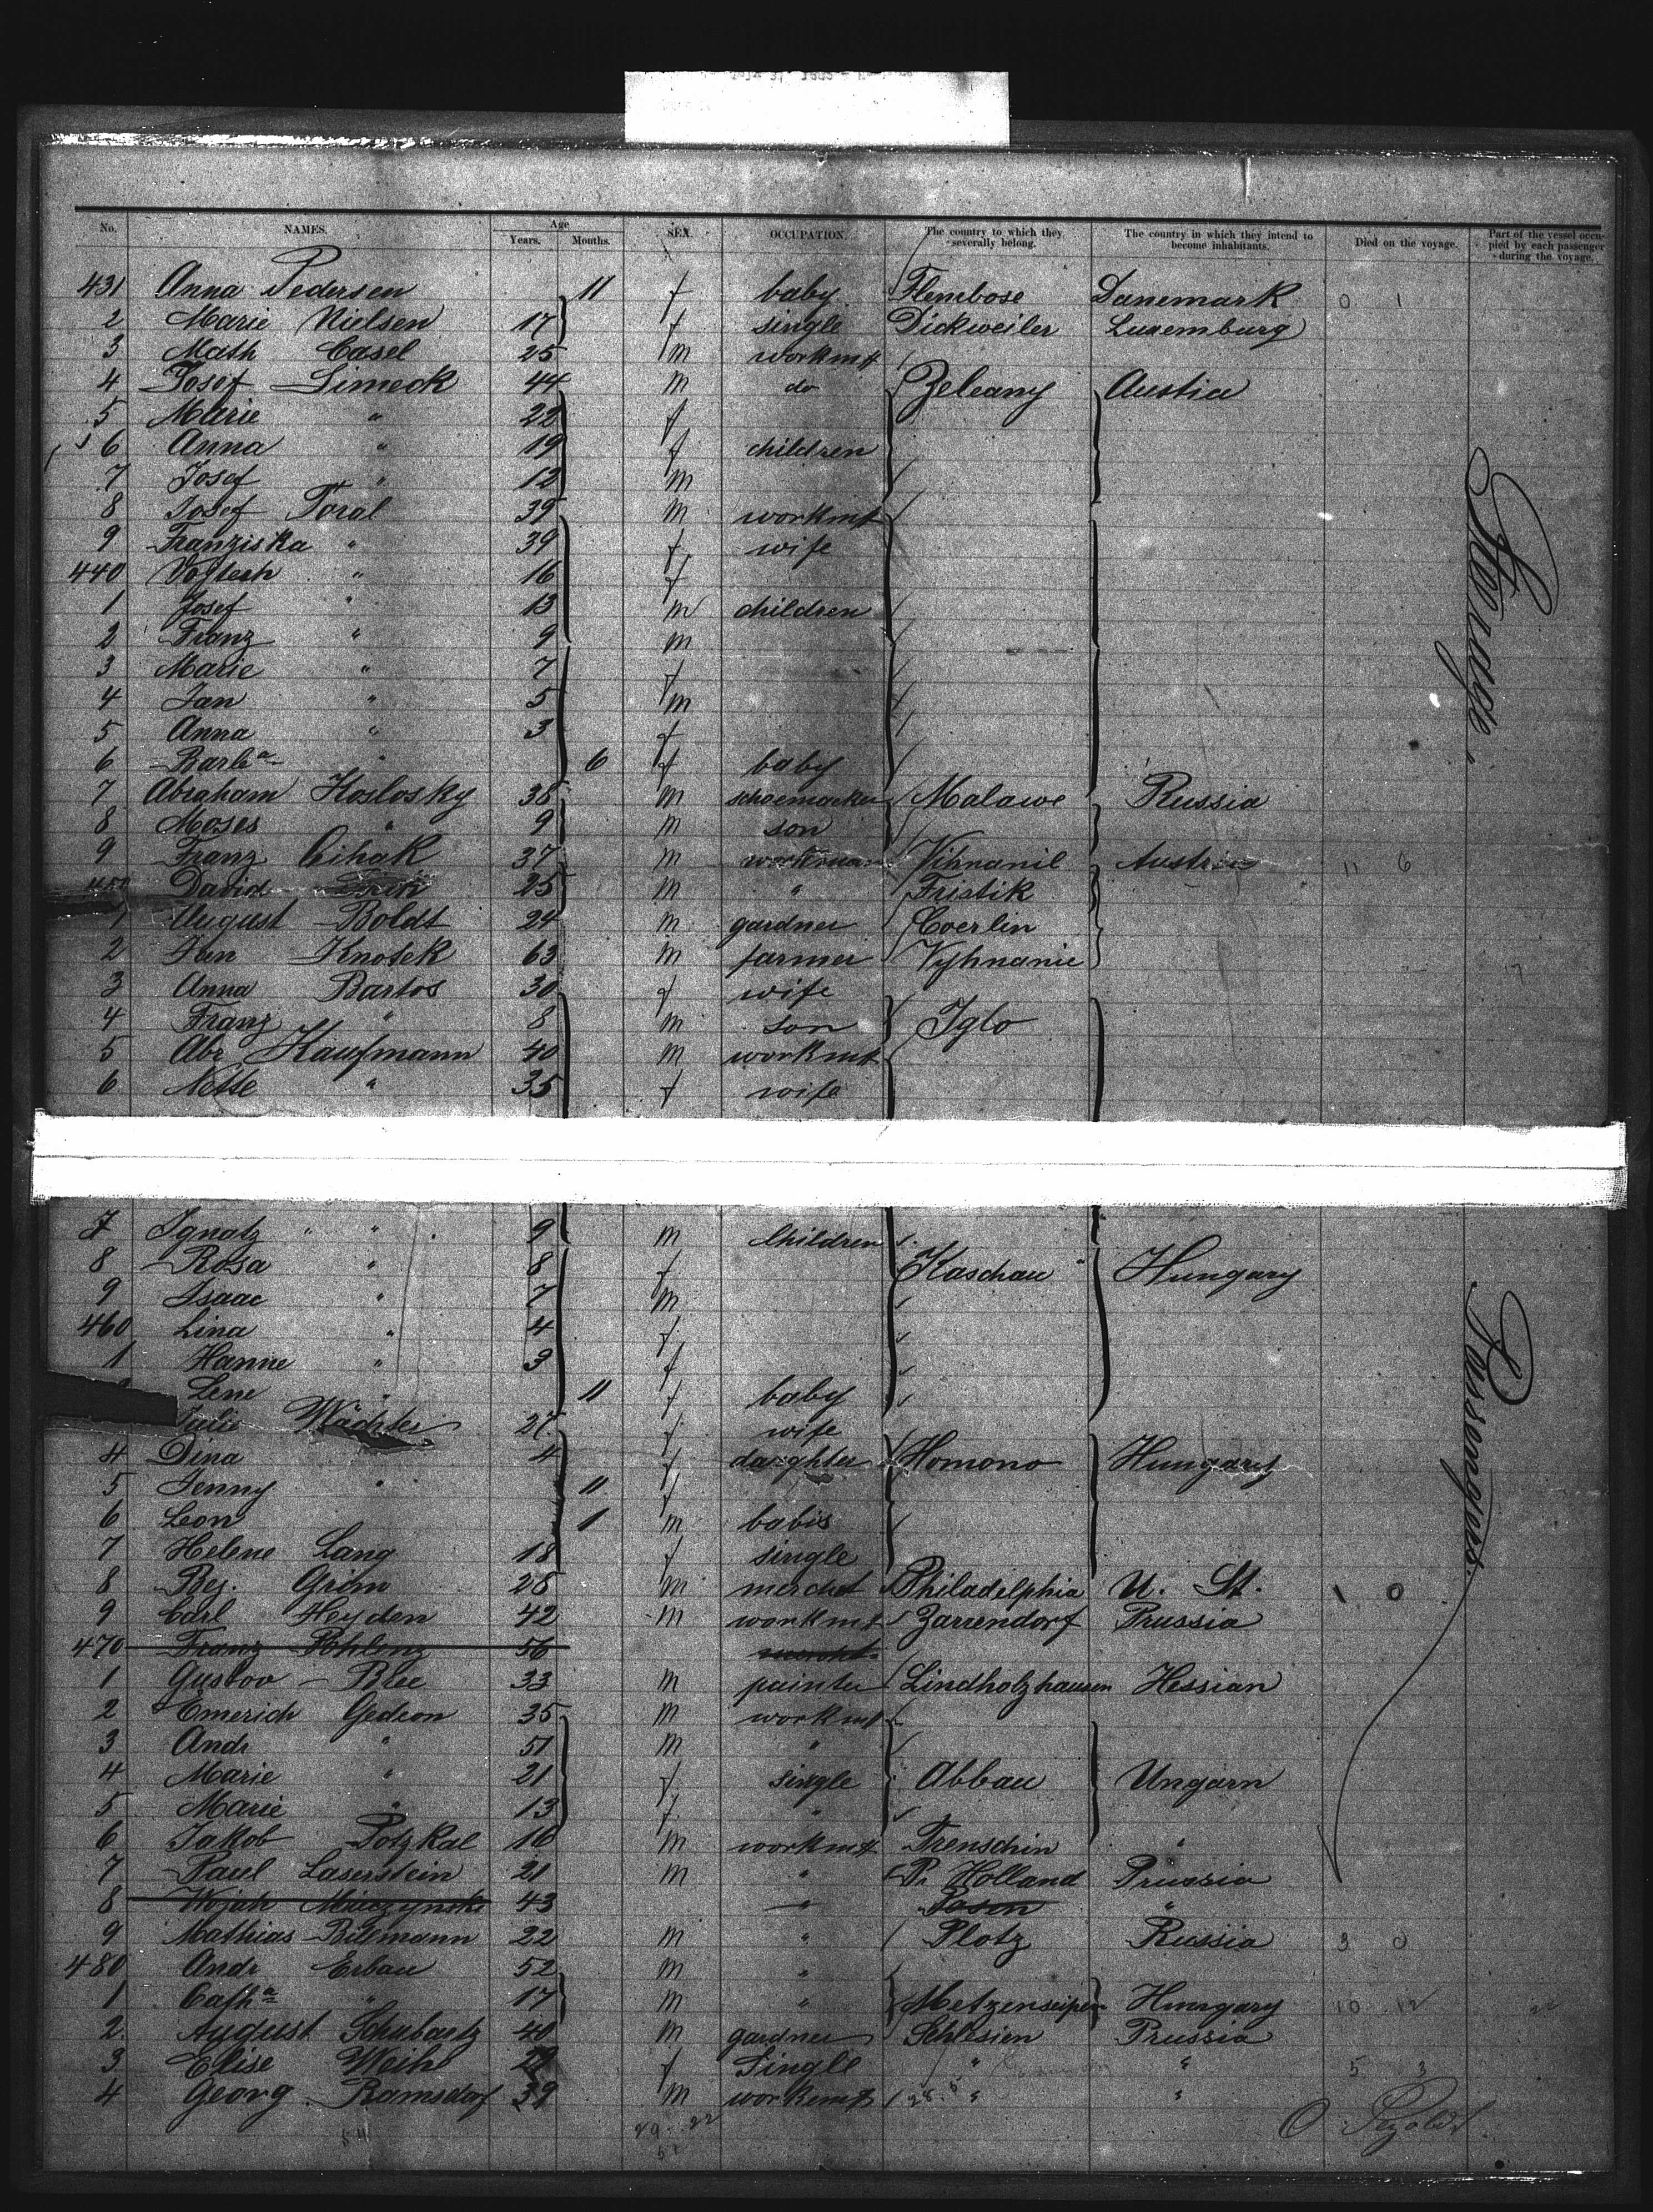 No. NAMES. Age Years. Months. SEX. OCCUPATION. The country to which they severally belong. The country in which they intend to become inhabitants. Died on the voyage. Part of the vessel occupied by each passenger during the voyage.
431 Anna Pedersen 11 f baby Flembose Danemark 0 1
2 Marie Nielsen 17 f single Dickweiler Luxemburg
3 Math Casel 25 m workmt
4 Josef Simeck 44 m do Zeleany Austia
5 Marie " 22 f
6 Anna " 19 f children
7 Josef " 12 m
8 Josef Toral 39 m workmt
9 Franziska " 39 f wife
440 Vojtech " 16 f
1 Josef " 13 m children
2 Franz " 9 m
3 Marie " 7 f
4 Jan " 5 m
5 Anna " 3 f
6 Barba " 6 f baby
7 Abraham Koslosky 38 m schoemacker Malawe Russia
8 Moses " 9 m son
9 Franz Cihak 37 m workman Vihnanil Austria 11 6
450 David 25 m " Fristik
1 August Boldt 24 m gardner Coerlin
2 Jan Knotek 63 m farmer Vyhnanie 17
3 Anna Bartos 30 f wife
4 Franz " 8 m son Iglo
5 Abr Kaufmann 40 m workmt
6 Nette " 35 f wife
Steerage
7 Ignatz " " 9 m Children
8 Rosa " 8 f Kaschau Hungary
9 Isaac " 7 m
460 Lina " 4 f
1 Hanne " 3 f
Lene " 11 f baby
Julie Wachter 27 f wife
4 Dina 4 f daughter Homono Hungary
5 Jenny " 11 f
6 Leon 1 m babis
7 Helene Lang 18 f single
8 Bej. Grim 28 m merchat Philadelphia U. St. 1 0
9 Carl Heyden 42 m workmt Zarrendorf Prussia
470 Franz Pohlenz 56
1 Gustav Blee 33 m painter Lindholzhausen Hessian
2 Emerich Gedeon 35 m workmt
3 Andr " 51 m "
4 Marie " 21 f single Abbau Ungarn
5 Marie " 13 f "
6 Jakob Potzkal 16 m workmt Trenschin "
7 Paul Laserstein 21 m " Pr Holland Prussia
8 Wojah Miaczynski 43 " Posen "
9 Mathias Bilemann 22 m " Plotz Russia 3 0
480 Andr Erbau 52 m "
1 Catha " 17 m " Metzenseipen Hungary 10 12
2 August Schubartz 40 m gardner Schlesien Prussia
3 Elise Weihs f Single " " 5 3
4 Georg Ramsdorf 39 m workemt " "
Passengers.